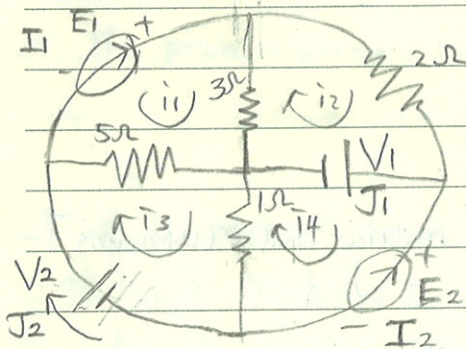 I1 E1 +
-
i1 3Ω i2 2Ω
5Ω
V1
J1
1Ω
i3 i4
V2
J2
+
E2
- I2